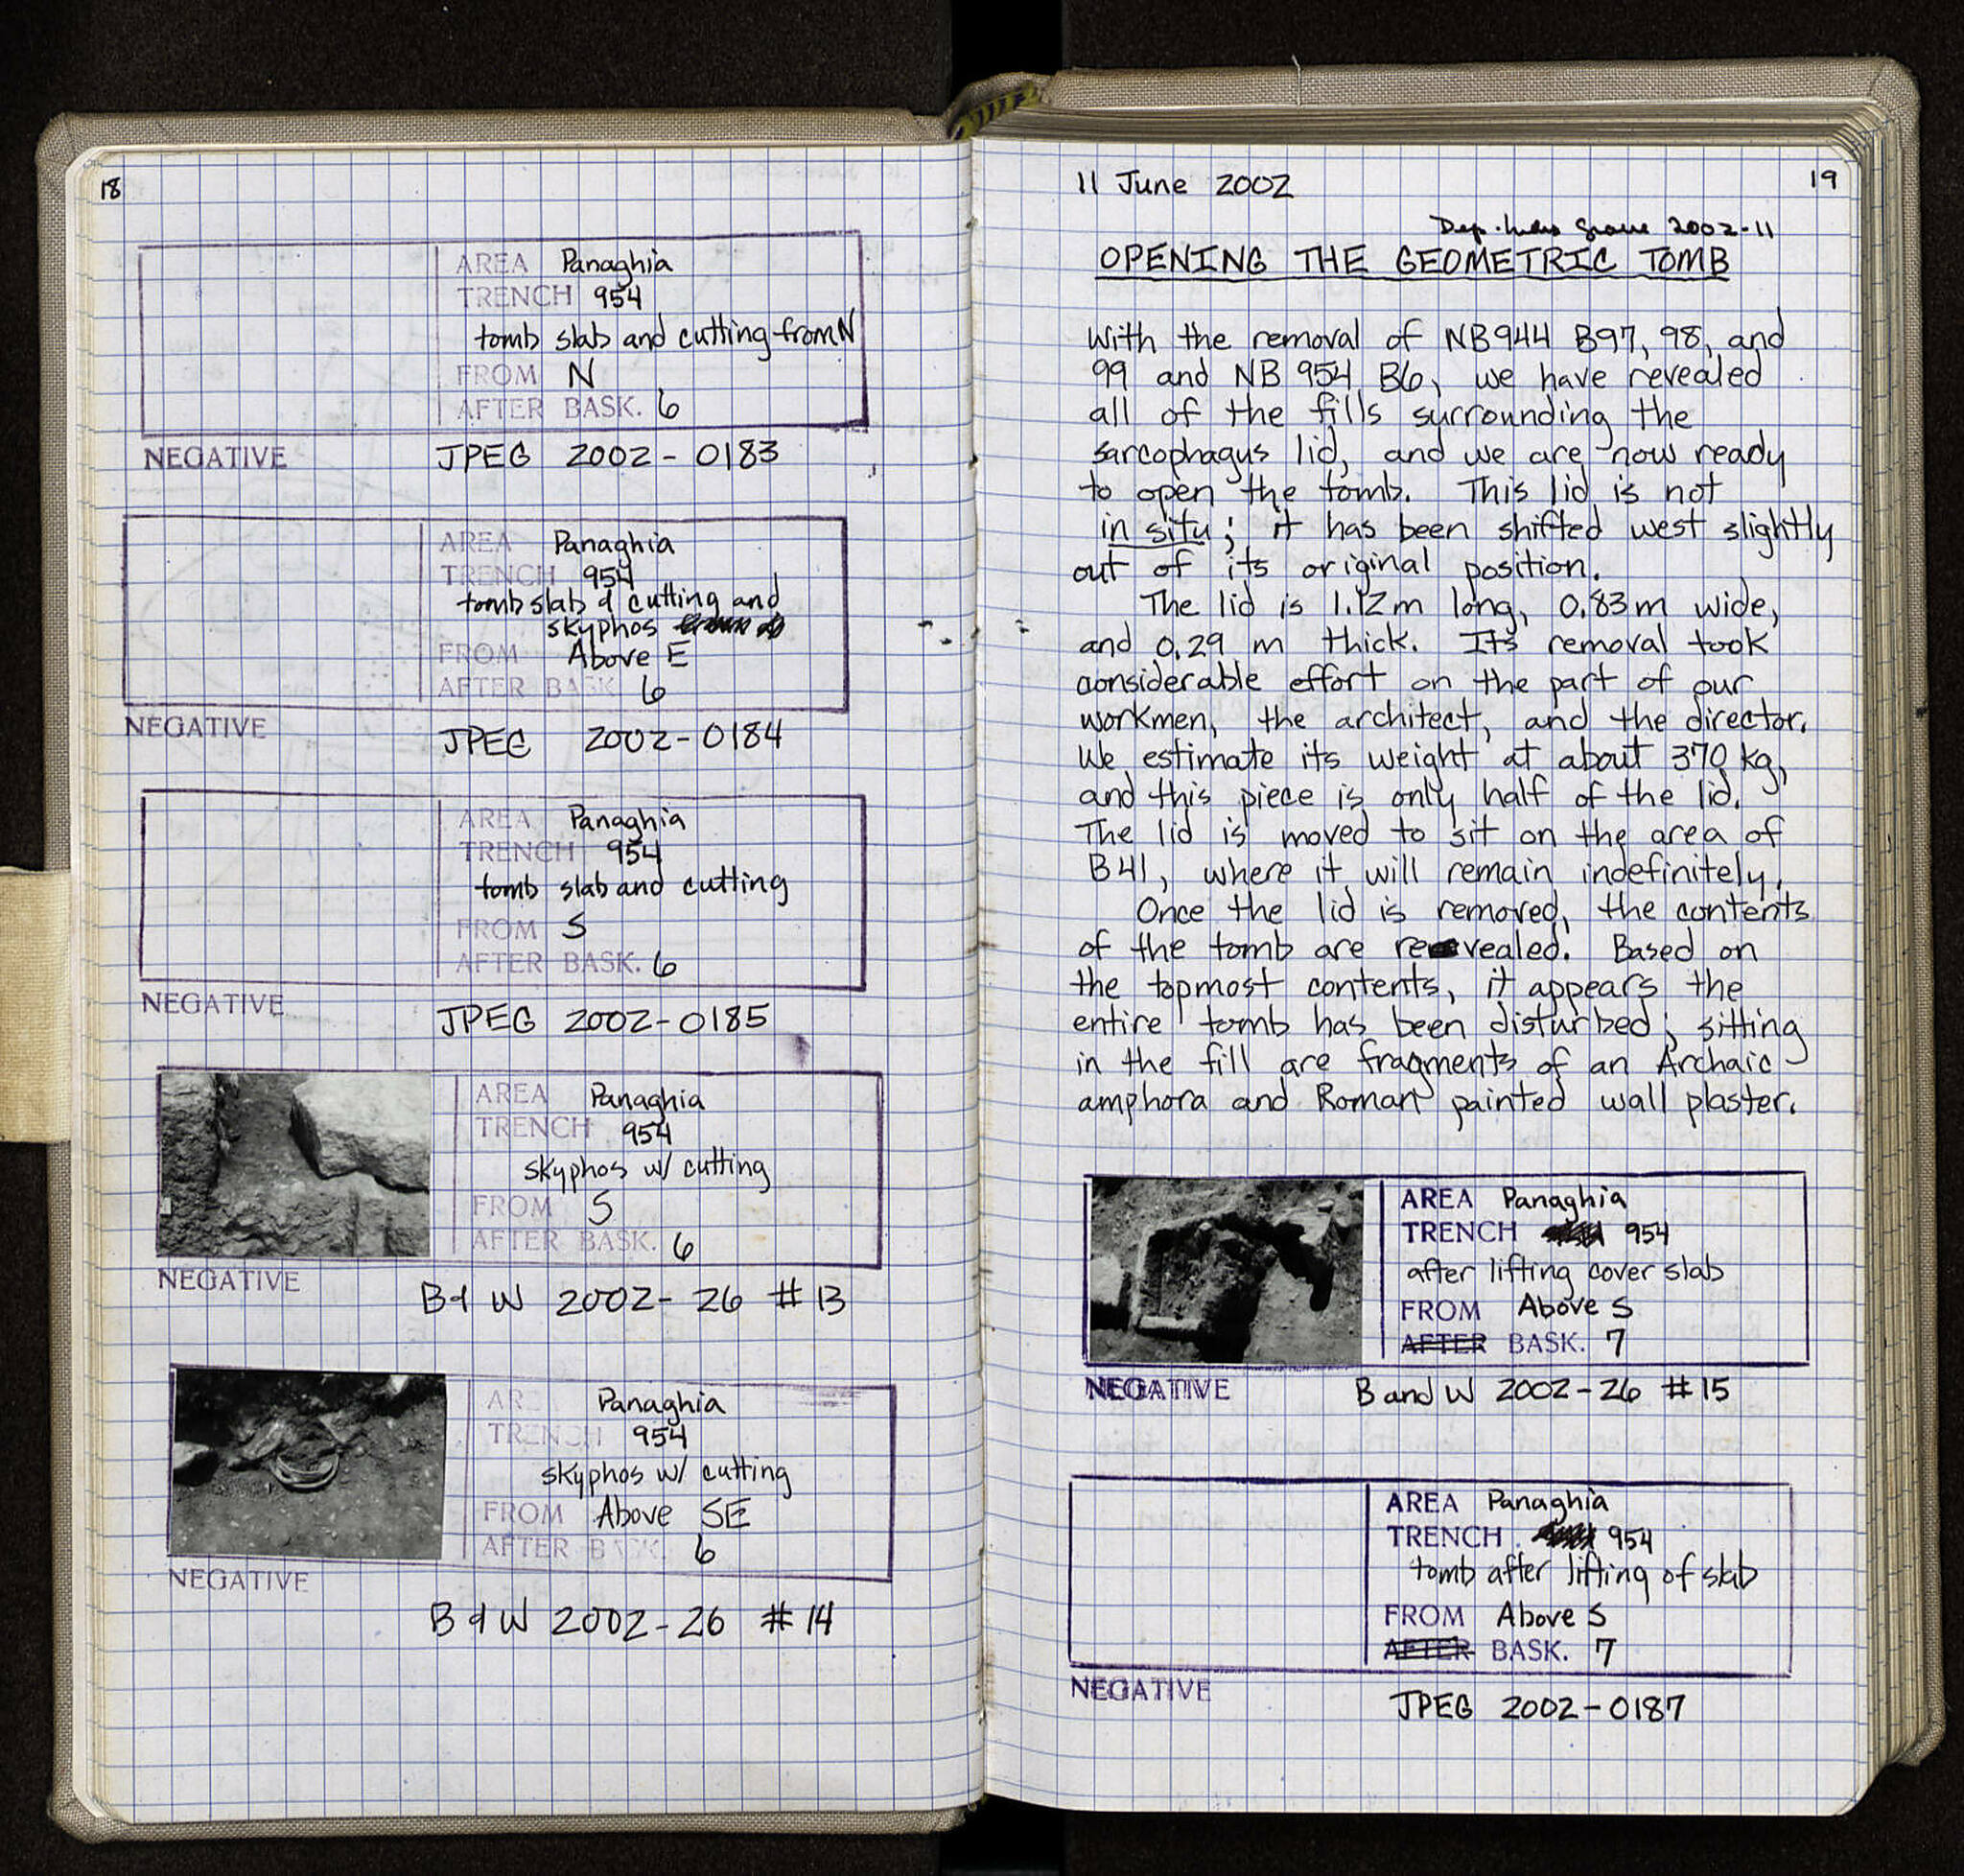 18
AREA Panaghia
TRENCH 954
tomb slab and cutting from N
FROM N
AFTER BASK. 6
NEGATIVE JPEG 2002-0183
AREA Panaghia
TRENCH 954
tomb slab & cutting and
skyphos
FROM Above E
AFTER BASK. 6
NEGATIVE JPEG 2002-0184
AREA Panaghia
TRENCH 954
tomb slab and cutting
FROM S
AFTER BASK. 6
NEGATIVE JPEG 2002-0185
AREA Panaghia
TRENCH 954
skyphos w/ cutting
FROM S
AFTER BASK. 6
NEGATIVE B & W 2002-26 #13
AREA Panaghia
TRENCH 954
skyphos w/ cutting
FROM Above SE
AFTER BASK. 6
NEGATIVE B & W 2002-26 #14
11 June 2002 19
Grave 2002-11
OPENING THE GEOMETRIC TOMB
With the removal of NB944 B97, 98, and
99 and NB 954 B6, we have revealed
all of the fills surrounding the
sarcophagus lid, and we are now ready
to open the tomb. This lid is not
in situ; it has been shifted west slightly
out of its original position.
The lid is 1.12m long, 0.83m wide,
and 0.29 m thick. Its removal took
considerable effort on the part of our
workmen, the architect, and the director.
We estimate its weight at about 370 kg,
and this piece is only half of the lid.
The lid is moved to sit on the area of
B41, where it will remain indefinitely.
Once the lid is removed, the contents
of the tomb are revealed. Based on
the topmost contents, it appears the
entire tomb has been disturbed; sitting
in the fill are fragments of an Archaic
amphora and Roman painted wall plaster.
AREA Panaghia
TRENCH 954
after lifting cover slab
FROM Above S
AFTER BASK. 7
NEGATIVE B and W 2002-26 #15
AREA Panaghia
TRENCH 954
tomb after lifting of slab
FROM Above S
AFTER BASK. 7
NEGATIVE JPEG 2002-0187